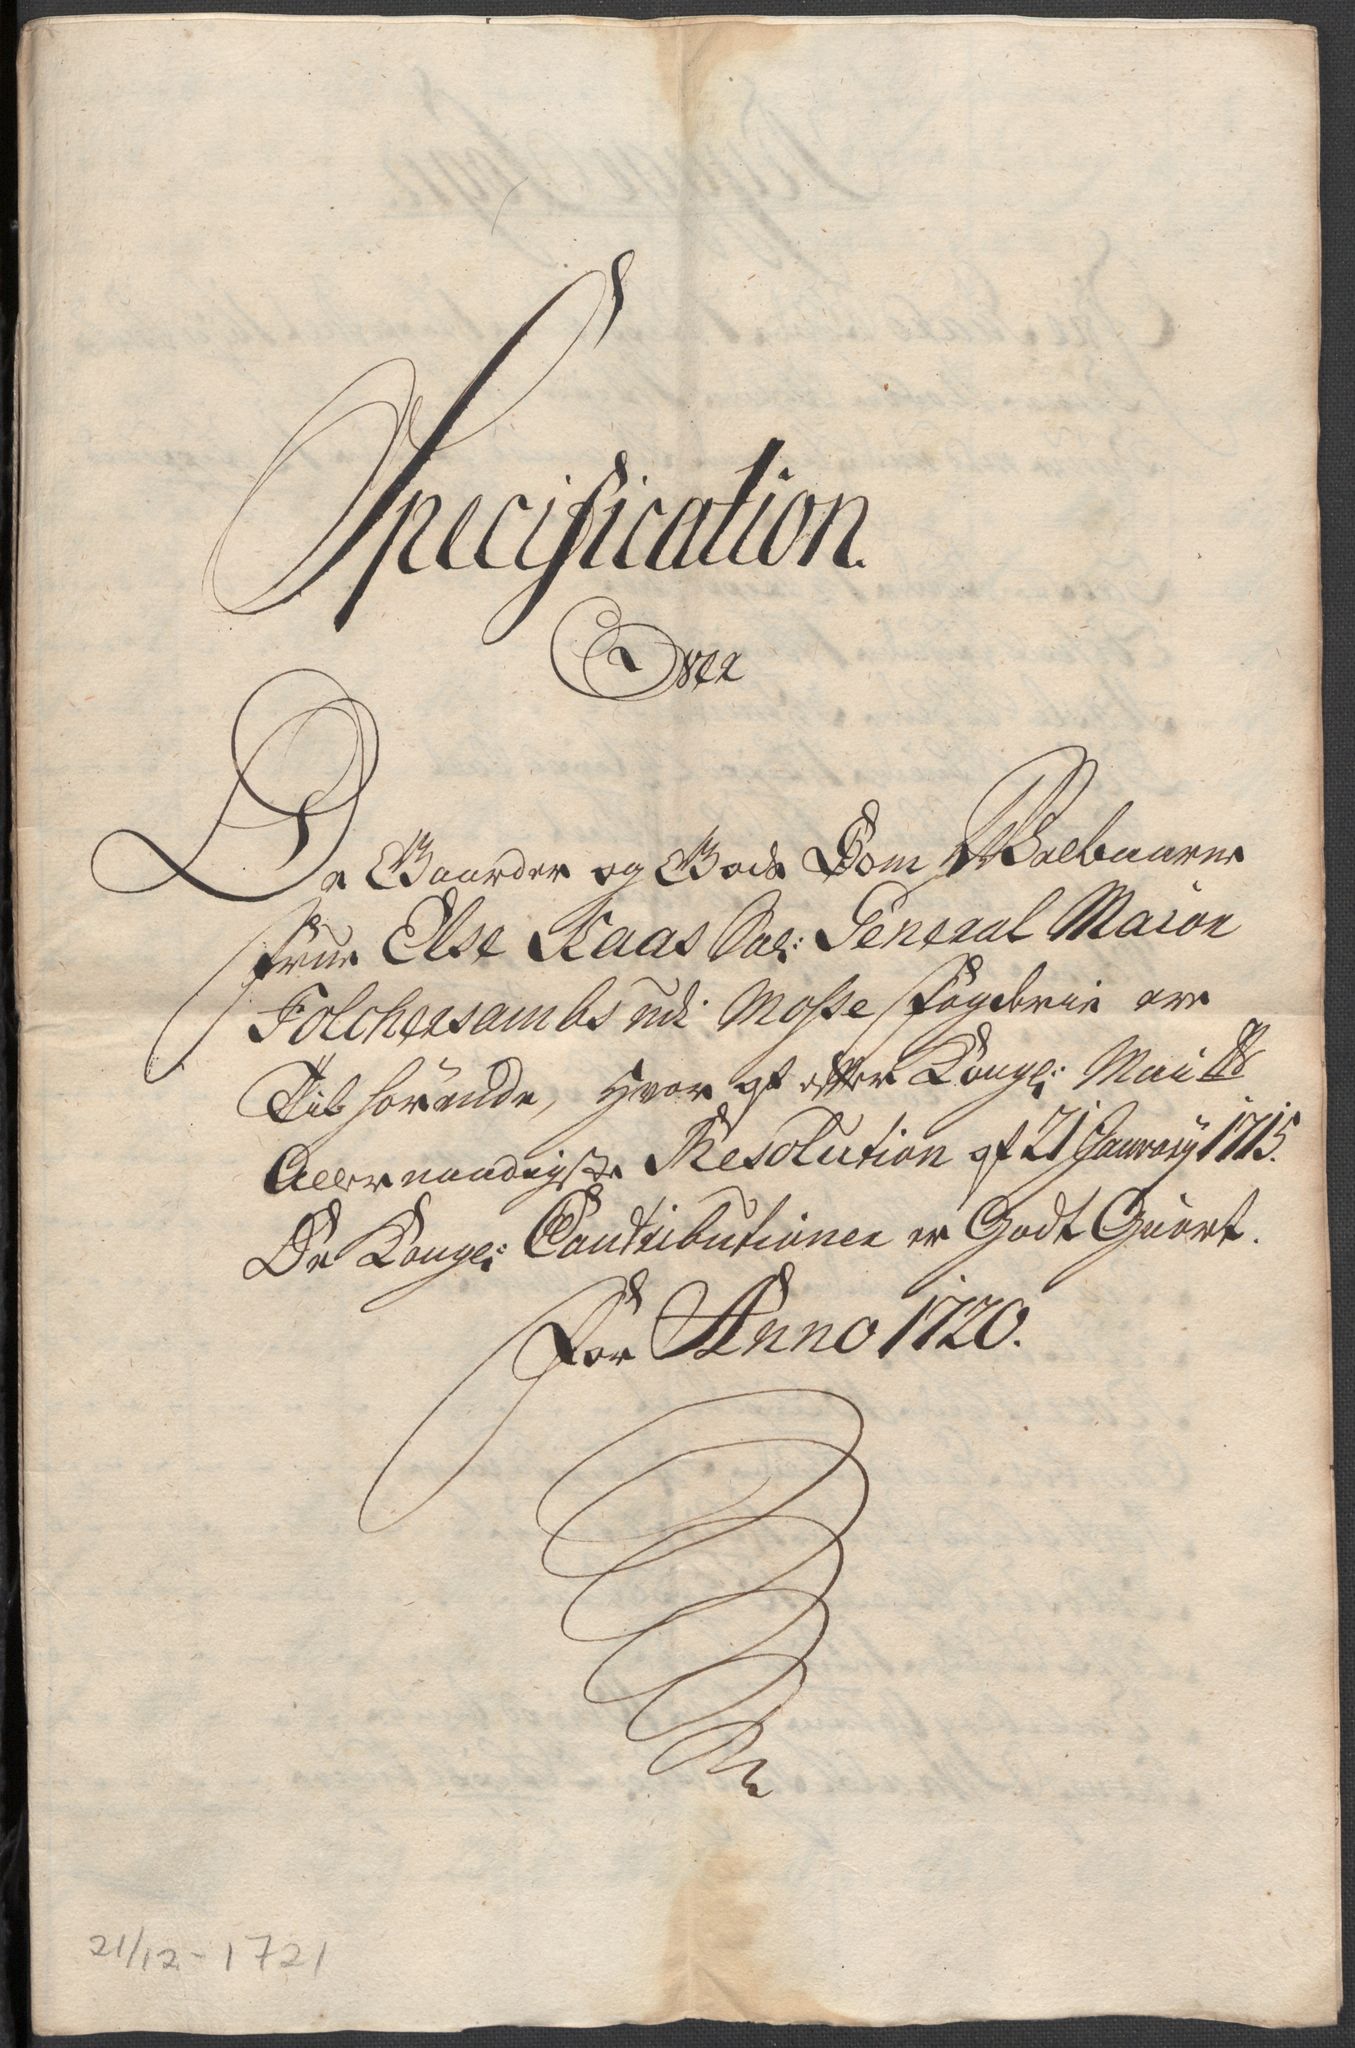 Specification.
Over
De Gaarder og Gods Som Welbaarne
Frue Else Kaas Sal: General Maior
Folchersambs udi Mosse Fogderie ere
Tilhörende, hvor af efter Kongl: Maits
Allernaadigste Resolution af 21 Januarij 1715.
De Kongl: Contributioner er Godt Giort.
For Anno 1720.
21/12-1721